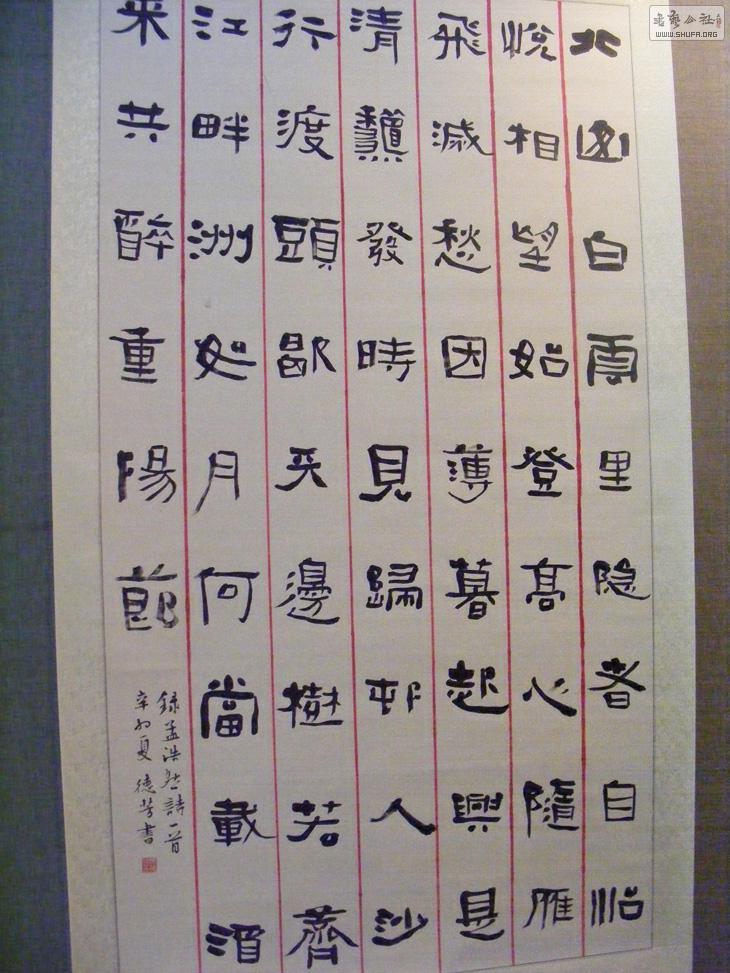 書藝公社
WWW.SHUFA.ORG
北山白雲里隐者自怡
悅相望始登高心隨雁
飛滅愁因薄暮起興是
清龝發時見歸邨人沙
行渡頭歇天邊樹若薺
江畔洲如月何當載酒
来共醉重陽節
録孟浩然詩一首
辛卯夏 德芳書